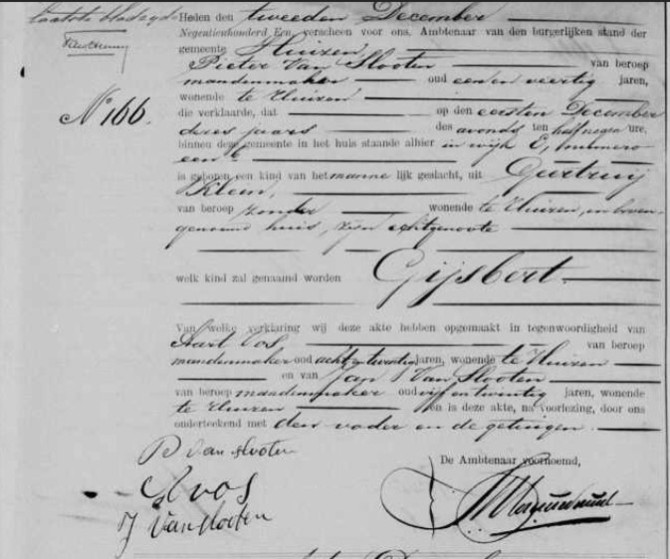 laatste bladzijde
Heden den tweeden December
Negentienhonderd Een, verscheen voor ons, Ambtenaar van den burgerlijken stand der
gemeente Huizen,
Pieter Van Slooten van beroep
mandenmaker oud een en veertig jaren,
wonende te Huizen
No 166.
die verklaarde, dat op den eersten December
dezes jaars des avonds ten half negen ure,
binnen deze gemeente in het huis staande alhier in wijk E, numero
een
is geboren een kind van het mannelijk geslacht, uit Geertruij
Klein,
van beroep zonder wonende te Huizen, in boven
genoemd huis, zijn echtgenoote
welk kind zal genaamd worden Gijsbert.
Van welke verklaring wij deze akte hebben opgemaakt in tegenwoordigheid van
Hart Vos van beroep
mandenmaker oud acht en twintig jaren, wonende te Huizen
en van Jan Van Slooten
van beroep mandenmaker oud vijf en twintig jaren, wonende
te Huizen en is deze akte, na voorlezing, door ons
onderteekend met den vader en de getuigen.
P van Slooten
De Ambtenaar voornoemd,
Vos
J Van Slooten